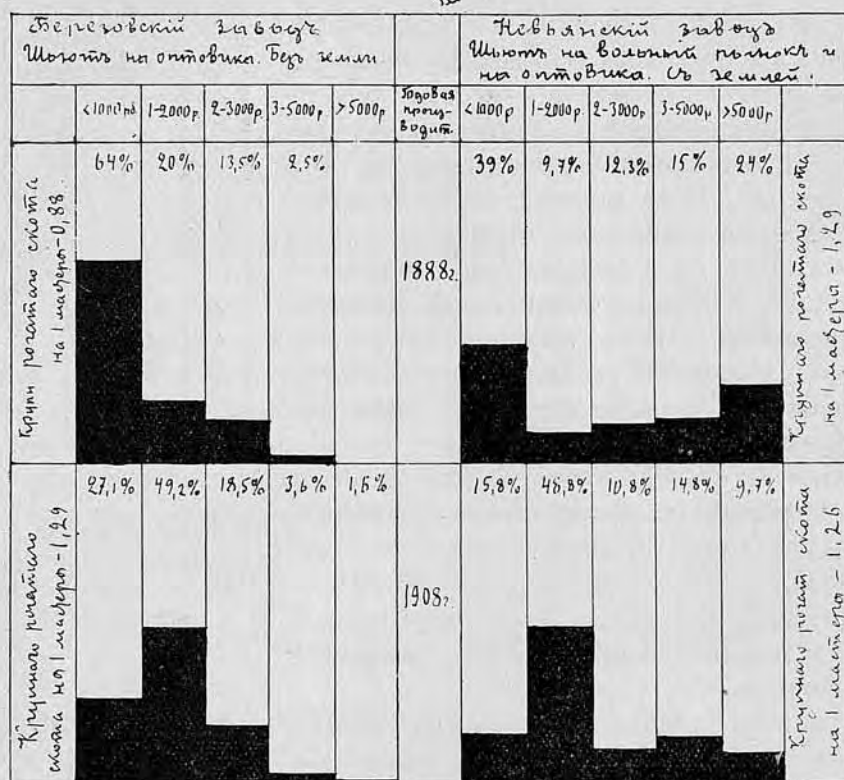 Березовскій заводъ
Шьютъ на оптовика. Безъ земли.
Невьянскій заводъ
Шьютъ на вольный рынокъ и
на оптовика. Съ землей.
<1000 рб. 1-2000 р. 2-3000 р. 3-5000 р. >5000 р.
Годовая
произ-
водит.
<1000 р. 1-2000 р. 2-3000 р. 3-5000 р. >5000 р.
Крупн рогатаго скота
на 1 мастера-0,88
64% 20% 13,5% 2,5%
1888г.
39% 9,7% 12,3% 15% 24%
Крупнаго рогатаго скота
на 1 мастера - 1,29
Крупнаго рогатаго
скота на 1 мастера-1,29
27,1% 49,2% 18,5% 3,6% 1,6%
1908г.
15,8% 48,8% 10,8% 14,8% 9,7%
Крупнаго рогат скота
на 1 мастера - 1,26